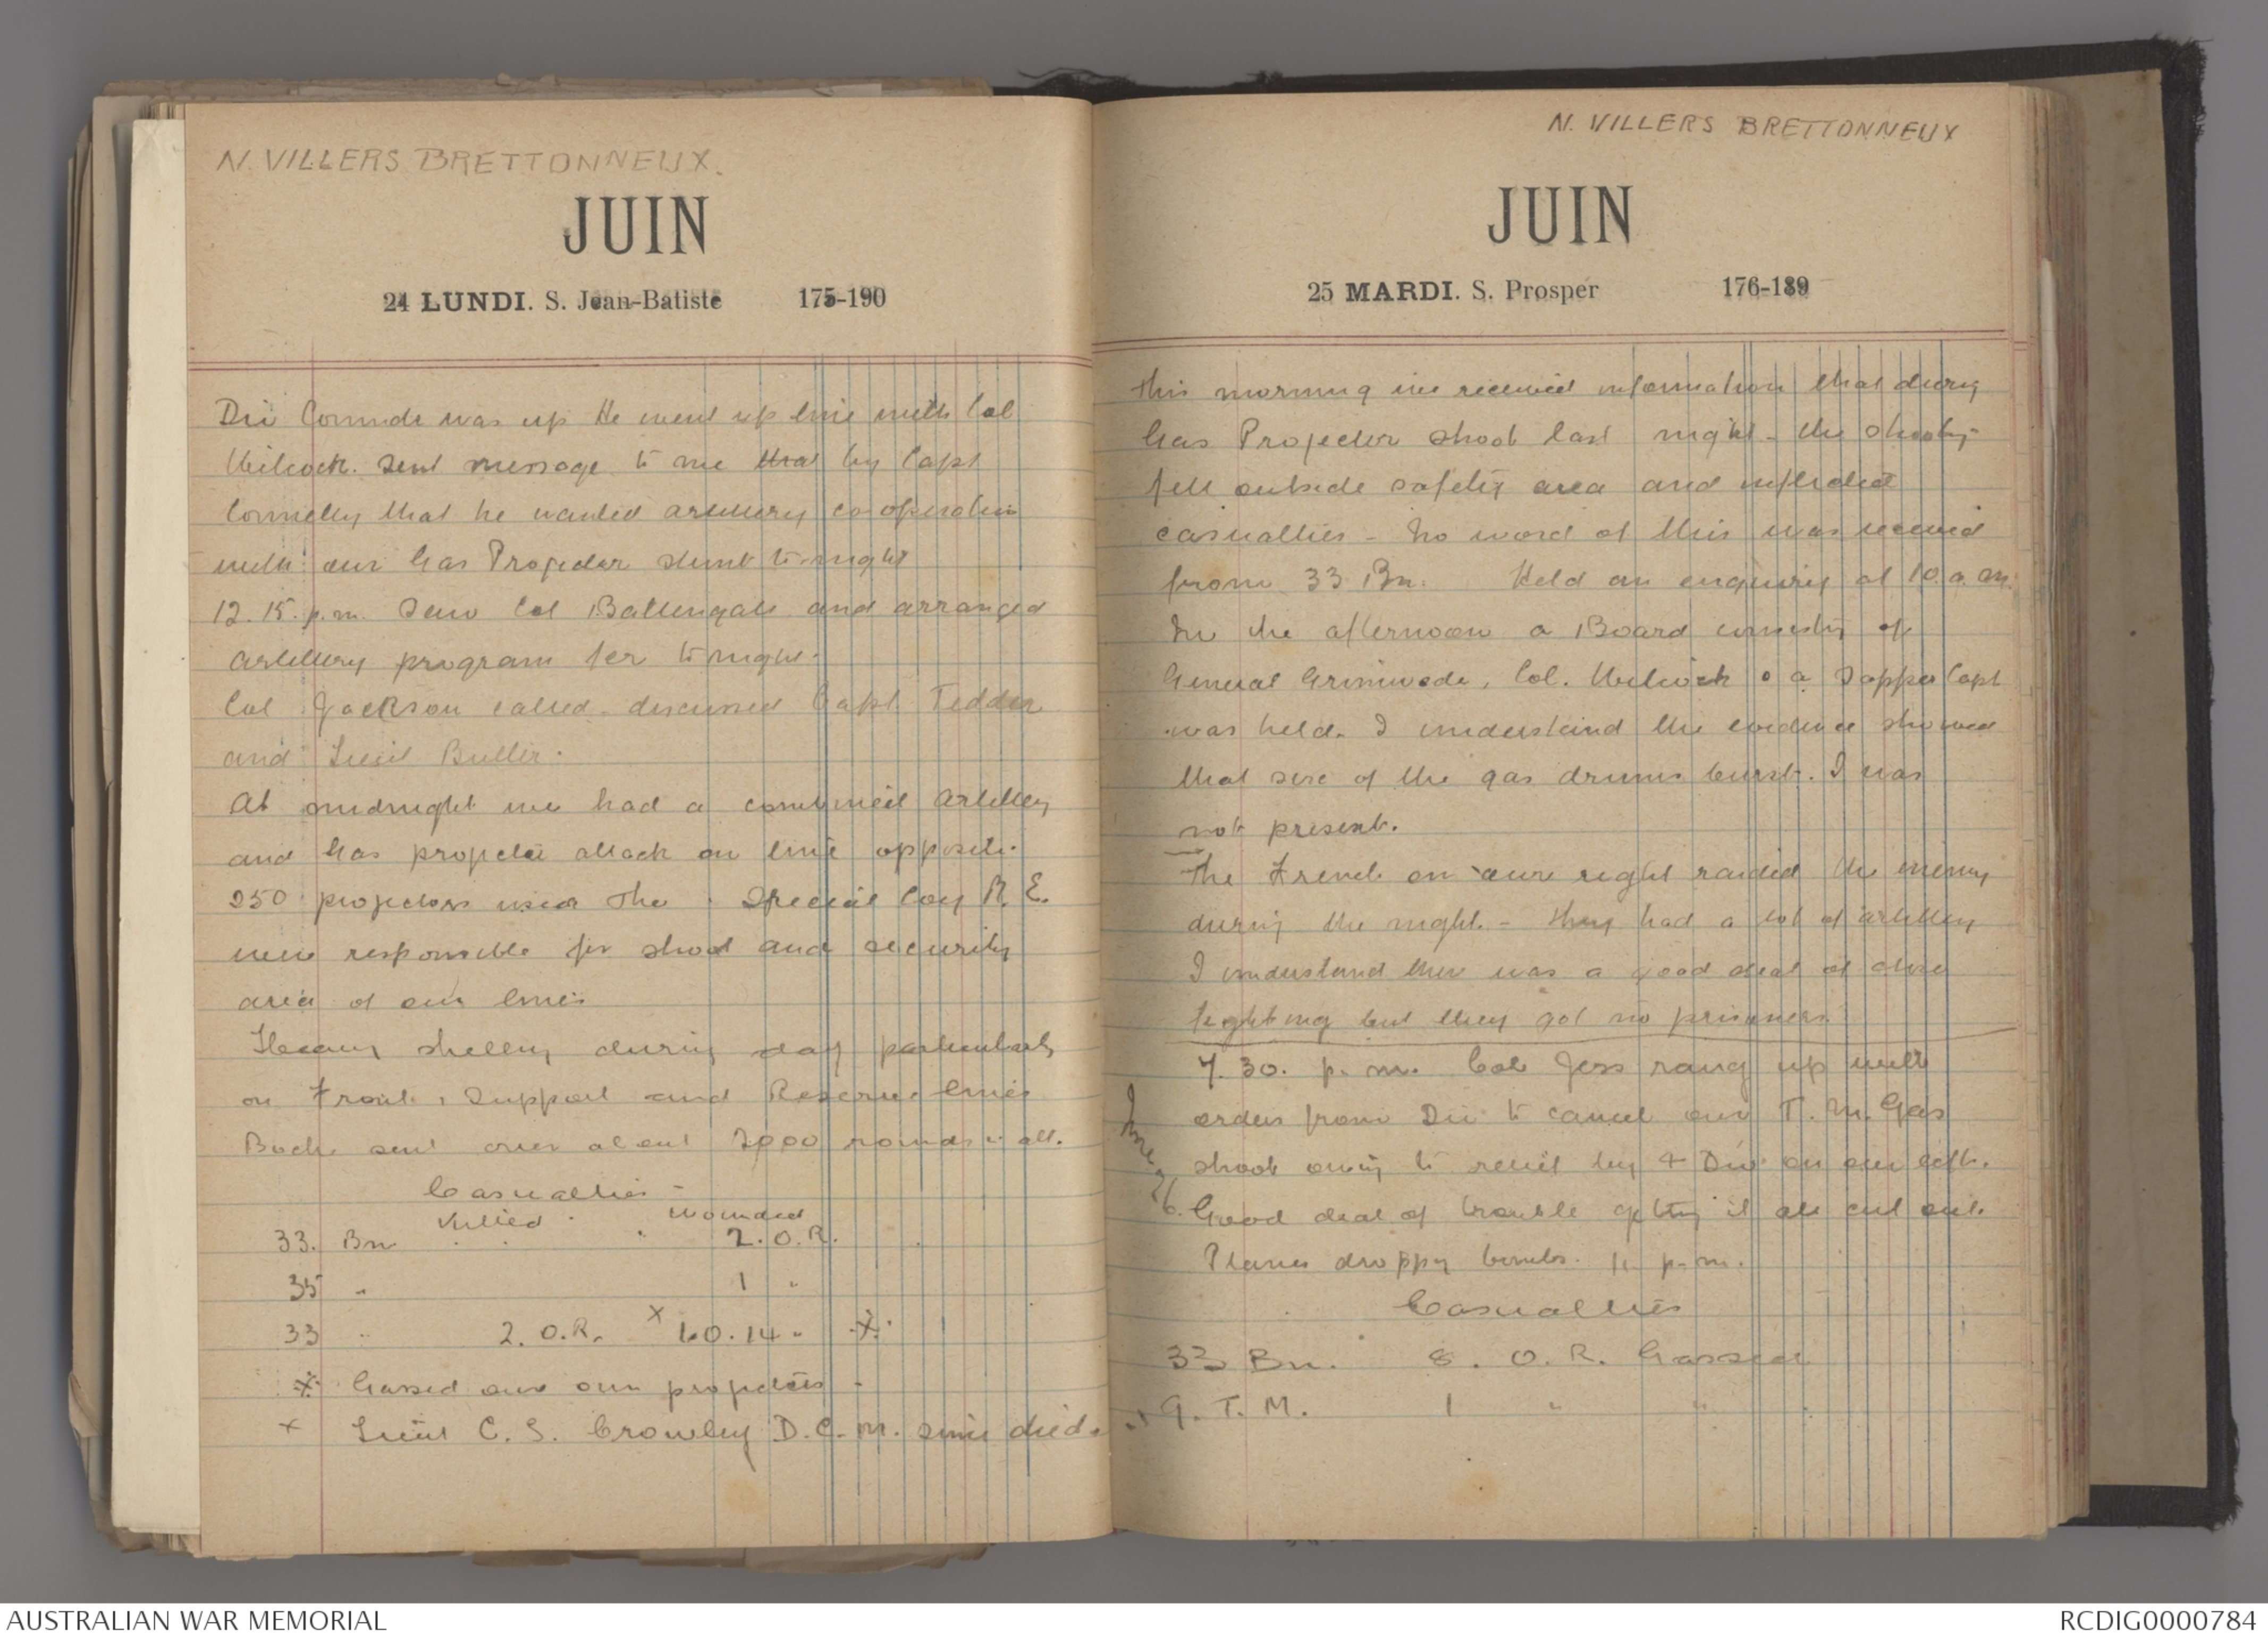 N. VILLERS BRETTONNEUX.
JUIN
24 LUNDI. S. Jean-Batiste 175-190
Div Commdr was up He went up line with Col
Wilcock. Sent message to me that by Capt
Connelly that he wanted artillery co-operation
with our Gas Projector stunt to-night
12.15. p.m. Saw Col Ballengall and arranged
artillery program for to night.
Col Jackson called. discussed Capt Tedder
and Lieut Buller.
At midnight we had a combined Artillery
and Gas projector attack on line opposite.
250 projectors used The Special Coy R. E.
were responsible for shoot and security
area of our lines
Heavy shelling during day particularly
on Front, Support and Reserve lines
Boche sent over about 2000 rounds in all.
Casualties -
Killed wounded
33. Bn 2. O.R.
35 " 1 "
33 " 2. O.R. x 1.O.14 " ※
※ Gassed our own projectors -
x Lieut C. S. Crowley D.C.M. since died.
N. VILLERS BRETTONNEUX
JUIN
25 MARDI. S. Prosper 176-189
This morning we received information that during
Gas Projector shoot last night - the shooting
fell outside safety area and inflicted
casualties - No word of this was received
from 33 Bn. Held an enquiry at 10. a. m.
In the afternoon a Board consisting of
General Grimwade, Col. Wilcock & a Sapper Capt
was held. I understand the evidence showed
that six of the gas drums burst. I was
not present.
The French on our right raided the enemy
during the night. - they had a lot of artillery
I understand there was a good deal of close
fighting but they got no prisoners.
7. 30. p. m. Col Jess rang up with
orders from Div to cancel our T. M. Gas
shoot owing to relief by 4 Div on our left.
June 26.
Good deal of trouble getting it all cut out.
Planes droppg bombs. 11 p.m.
Casualties
33 Bn. 8. O. R. Gassed
9. T. M. 1 " "
AUSTRALIAN WAR MEMORIAL
RCDIG0000784